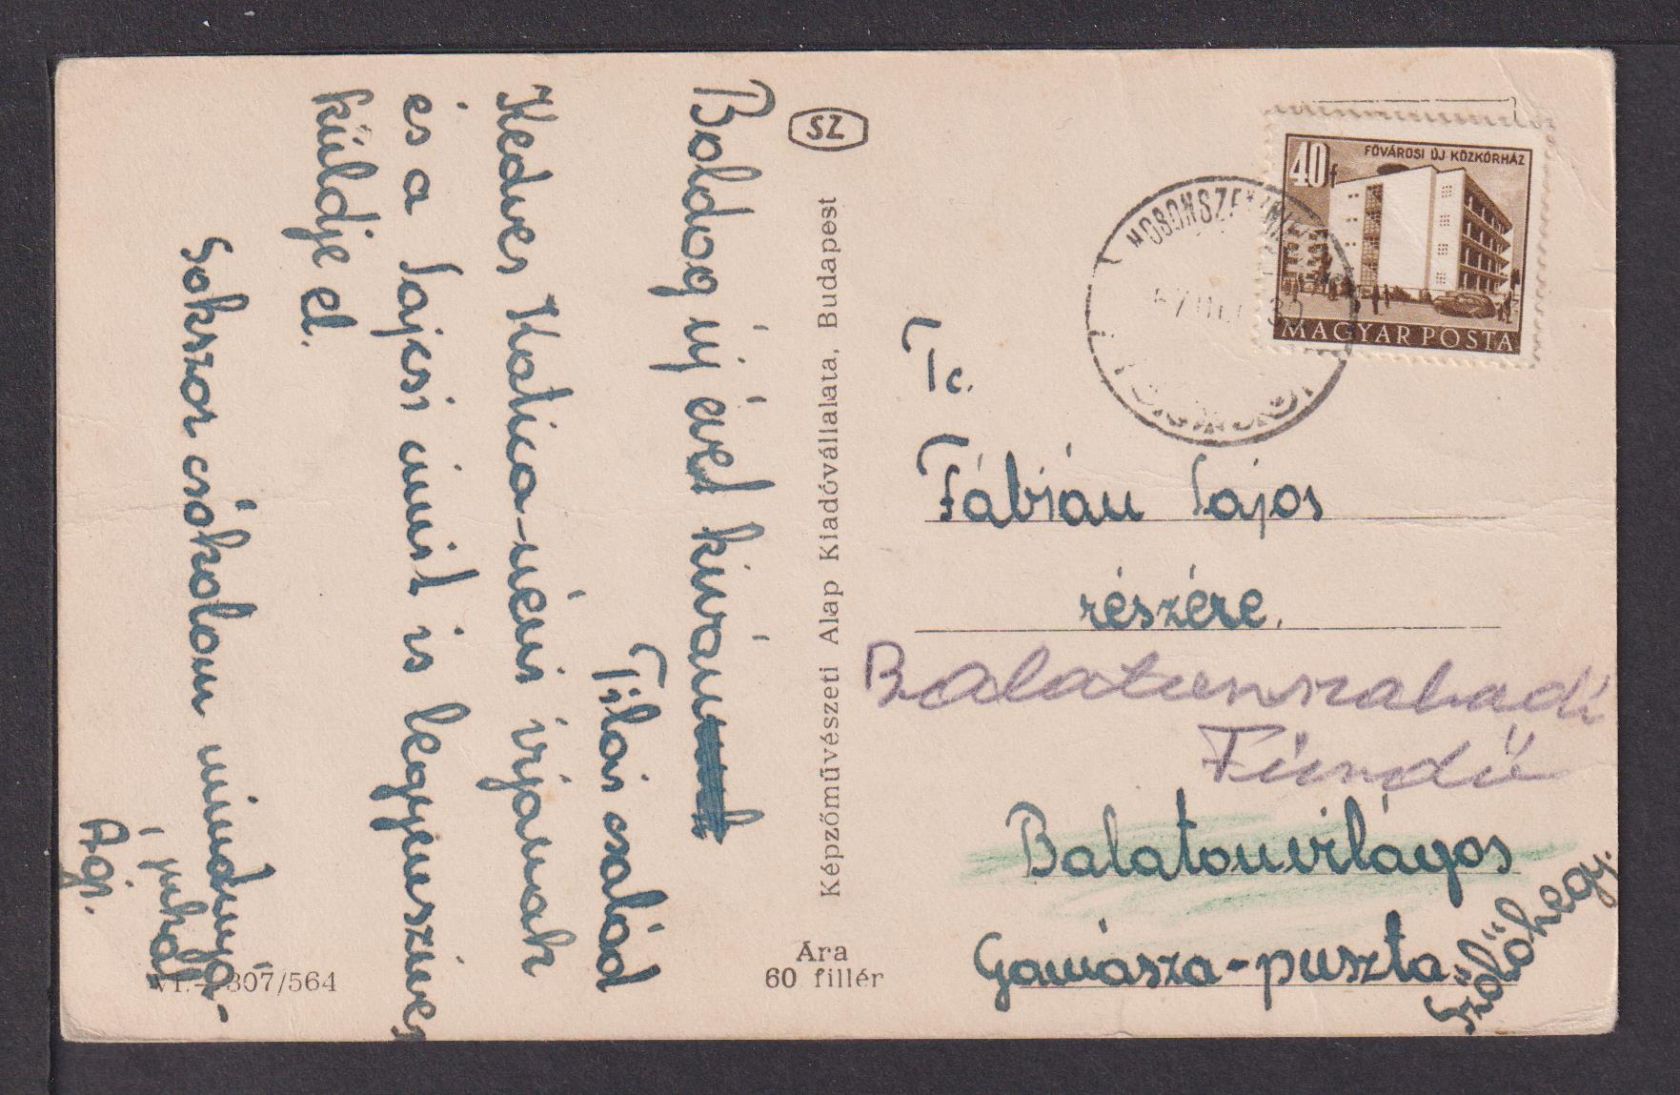 Boldog új évet kíván
Filás család
Kedves Katica-néni írjanak
és a Lajcsi címét is legyen szíves
küldje el.
Sokszor csókolom mindnyá-
jukat
Ági.
SZ
Képzőművészeti Alap Kiadóvállalata, Budapest
Ára
60 fillér
307/564
40f
FŐVÁROSI ÚJ KÖZKÓRHÁZ
MAGYAR POSTA
Tc.
Fábián Lajos
részére.
Balatonszabadi
Fürdő
Balatonvilágos
Gamásza-puszta.
Szőlőhegy.